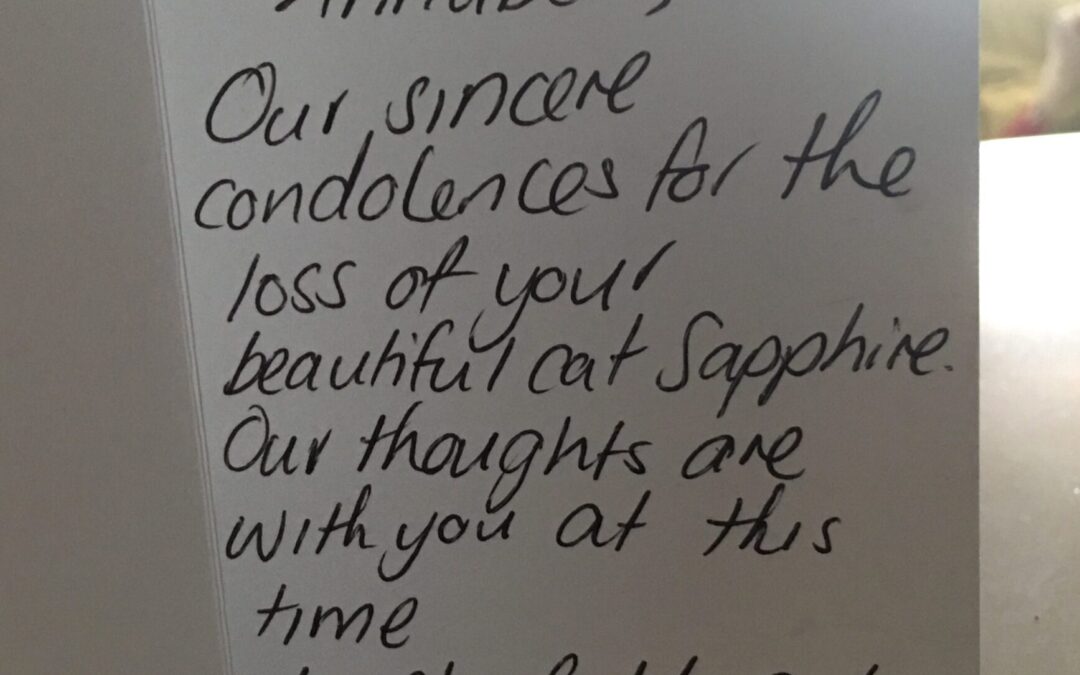 Our sincere
condolences for the
loss of your
beautiful cat Sapphire.
Our thoughts are
with you at this
time